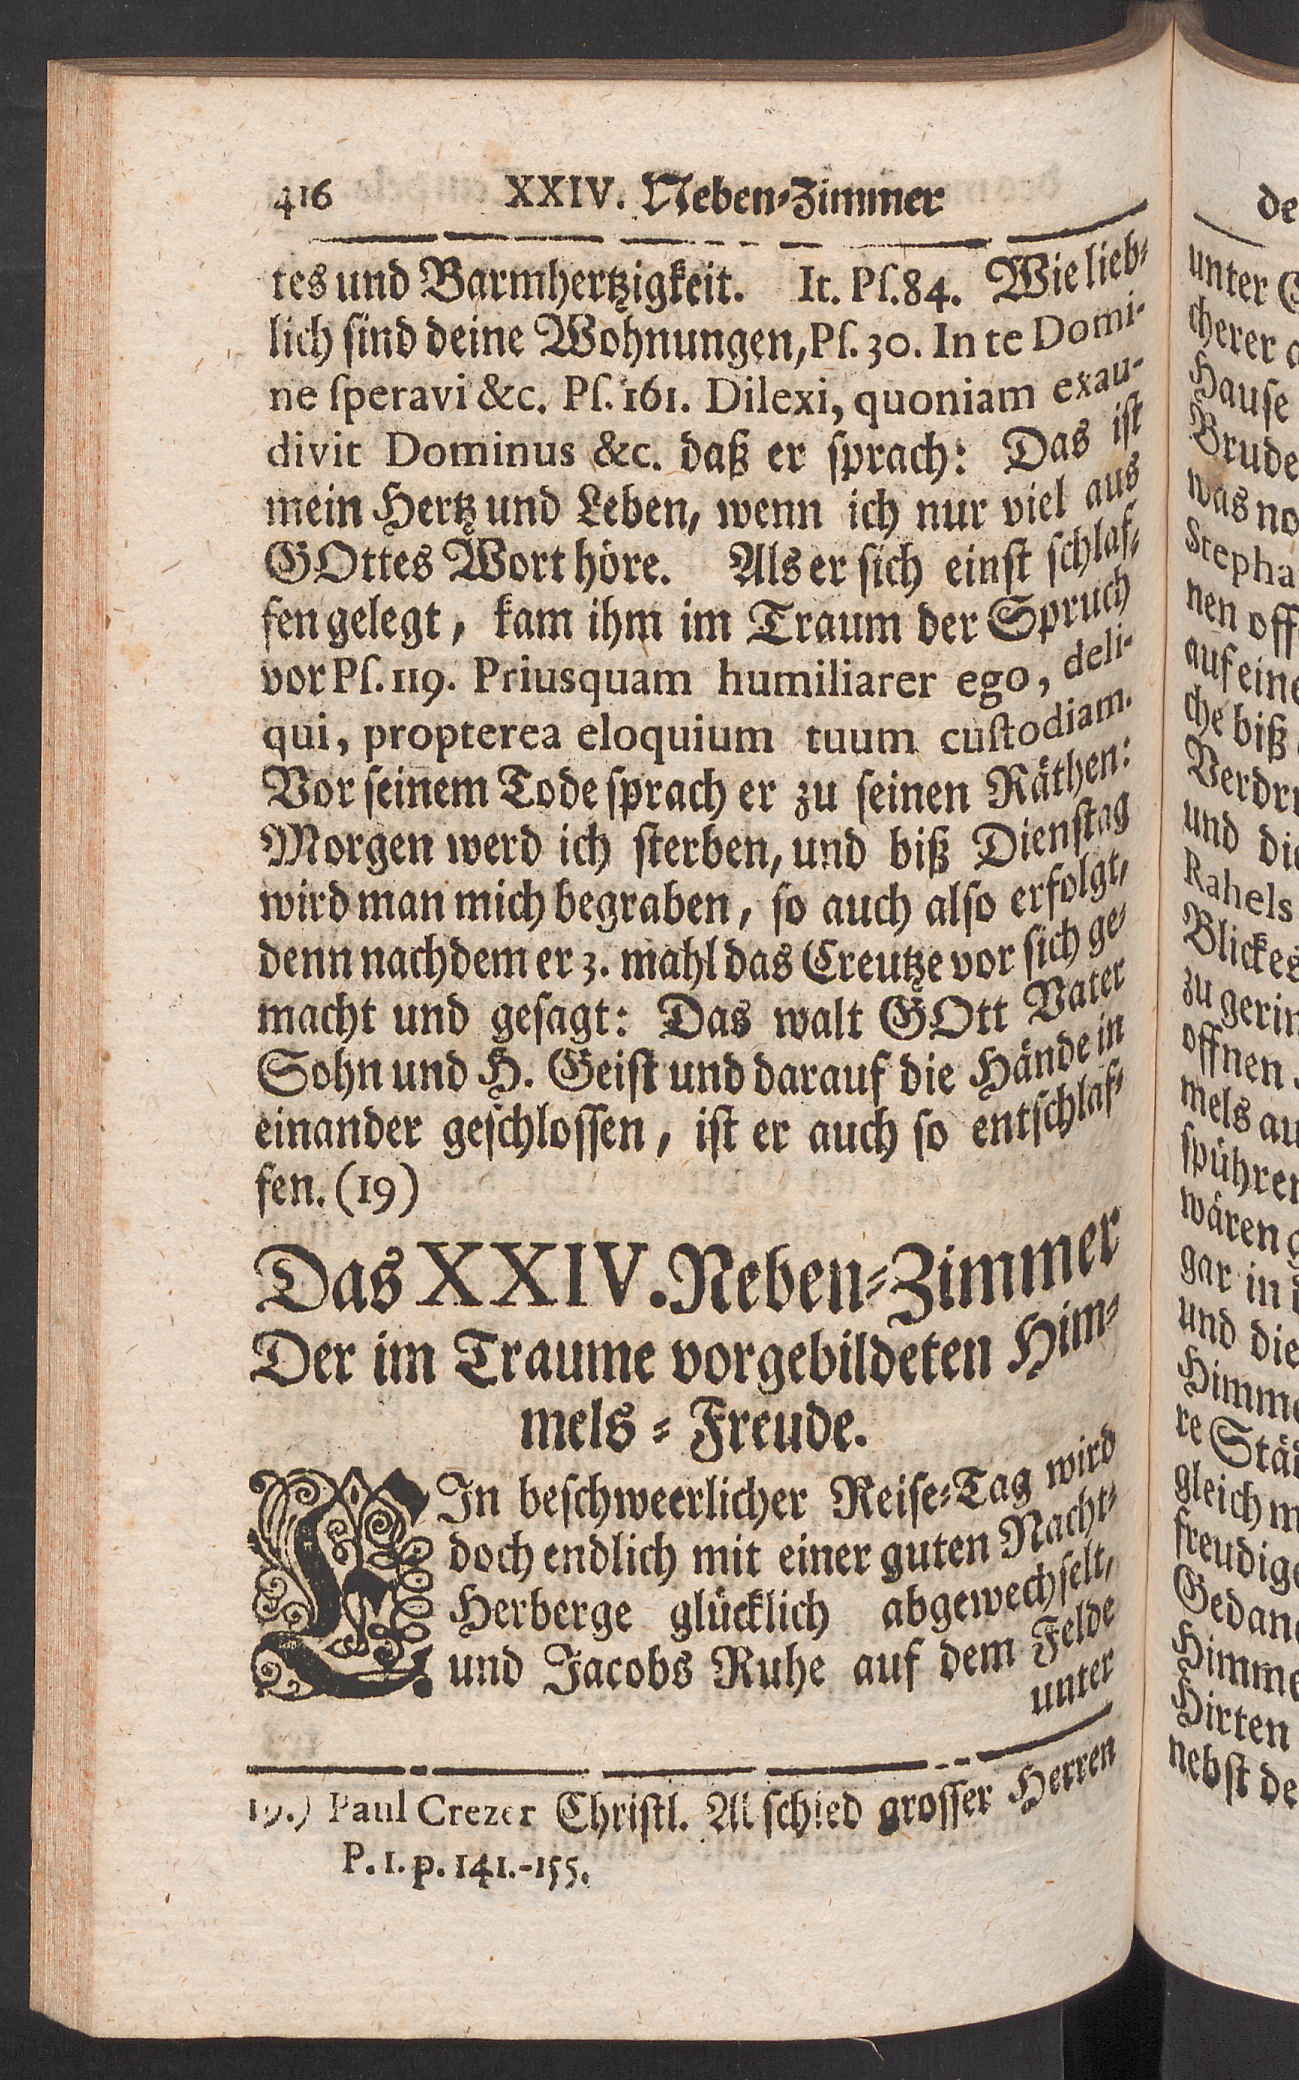 416 XXIV. Neben-Zimmer
tes und Barmhertzigkeit. It. Pſ. 84. Wie lieb-
lich ſind deine Wohnungen, Pſ. 30. In te Domi-
ne ſperavi &c. Pſ. 161. Dilexi, quoniam exau-
divit Dominus &c. daß er ſprach: Das iſt
mein Hertz und Leben, wenn ich nur viel aus
GOttes Wort höre. Als er ſich einſt ſchlaf-
fen gelegt, kam ihm im Traum der Spruch
vor Pſ. 119. Priusquam humiliarer ego, deli-
qui, propterea eloquium tuum cuſtodiam.
Vor ſeinem Tode ſprach er zu ſeinen Räthen:
Morgen werd ich ſterben, und biß Dienſtag
wird man mich begraben, ſo auch alſo erfolgt,
denn nachdem er 3. mahl das Creutze vor ſich ge-
macht und geſagt: Das walt GOtt Vater
Sohn und H. Geiſt und darauf die Hände in
einander geſchloſſen, iſt er auch ſo entſchlaf-
fen. (19)
Das XXIV. Neben-Zimmer
Der im Traume vorgebildeten Him-
mels-Freude.
EIn beſchweerlicher Reiſe-Tag wird
doch endlich mit einer guten Nacht-
Herberge glücklich abgewechſelt,
und Jacobs Ruhe auf dem Felde
unter
19.) Paul Crezer Chriſtl. Abſchied groſſer Herren
P. 1. p. 141.-155.
de
unter
cherer
Hauſe
Brude
was no
Stepha
nen off
auf eine
che biß
Verdr
und die
Rahels
Blickes
zu gerin
offnen
mels au
ſpühren
wären g
gar in
und die
Himme
re Stä
gleich m
freudige
Gedanc
Himme
Hirten
nebſt de